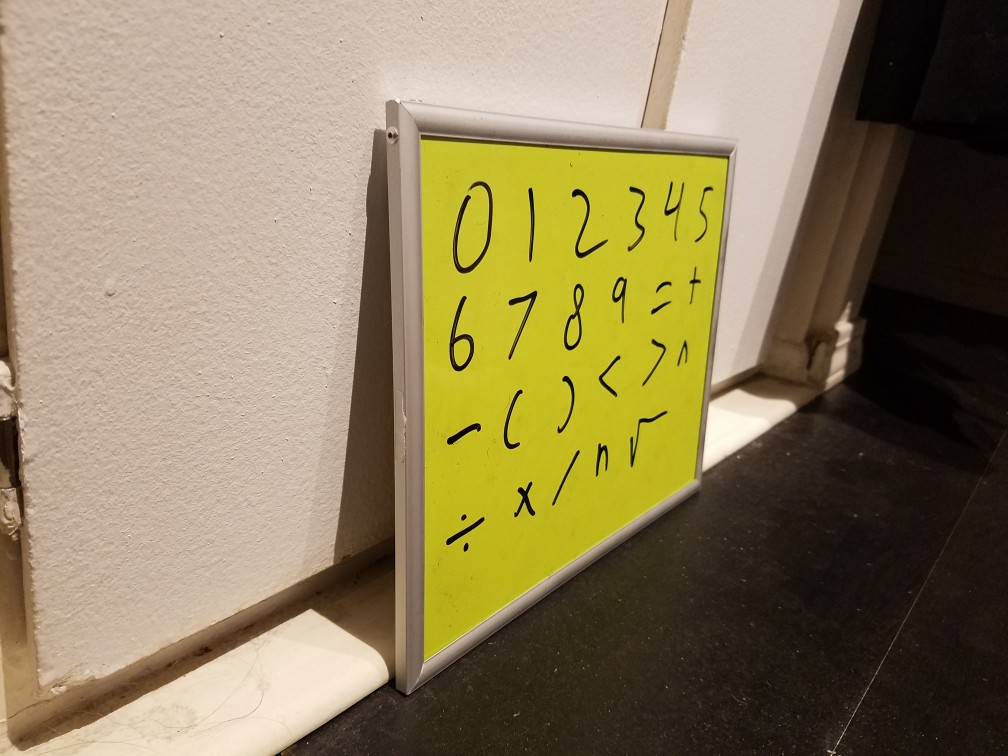 0 1 2 3 4 5
6 7 8 9 = +
- ( ) < > n
÷ x / n √